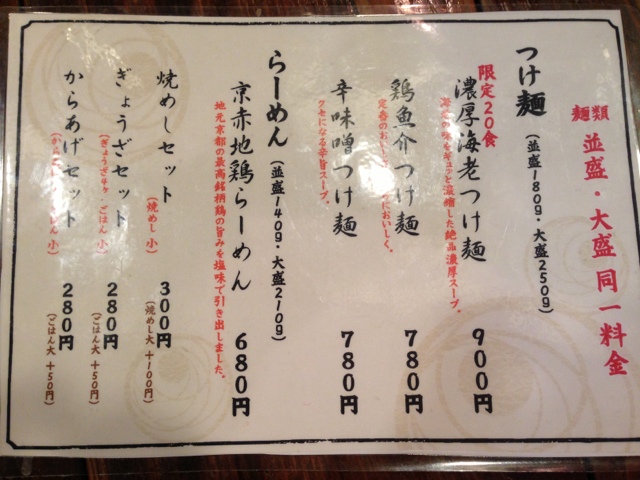 麺類 並盛・大盛 同一料金
つけ麺 (並盛180g・大盛250g)
限定20食
濃厚海老つけ麺 900円
海老の味をギュッと凝縮した絶品濃厚スープ。
鶏魚介つけ麺 780円
定番のおいし においしく。
辛味噌つけ麺 780円
クセになる辛旨スープ。
らーめん (並盛140g・大盛210g)
京赤地鶏らーめん 680円
地元京都の最高銘柄鶏の旨みを塩味で引き出しました。
焼めしセット (焼めし 小) 300円
(焼めし大 +100円)
ぎょうざセット 280円
(ぎょうざ4ヶ・ごはん 小)
(ごはん大 +50円)
からあげセット 280円
(か はん 小)
(ごはん大 +50円)